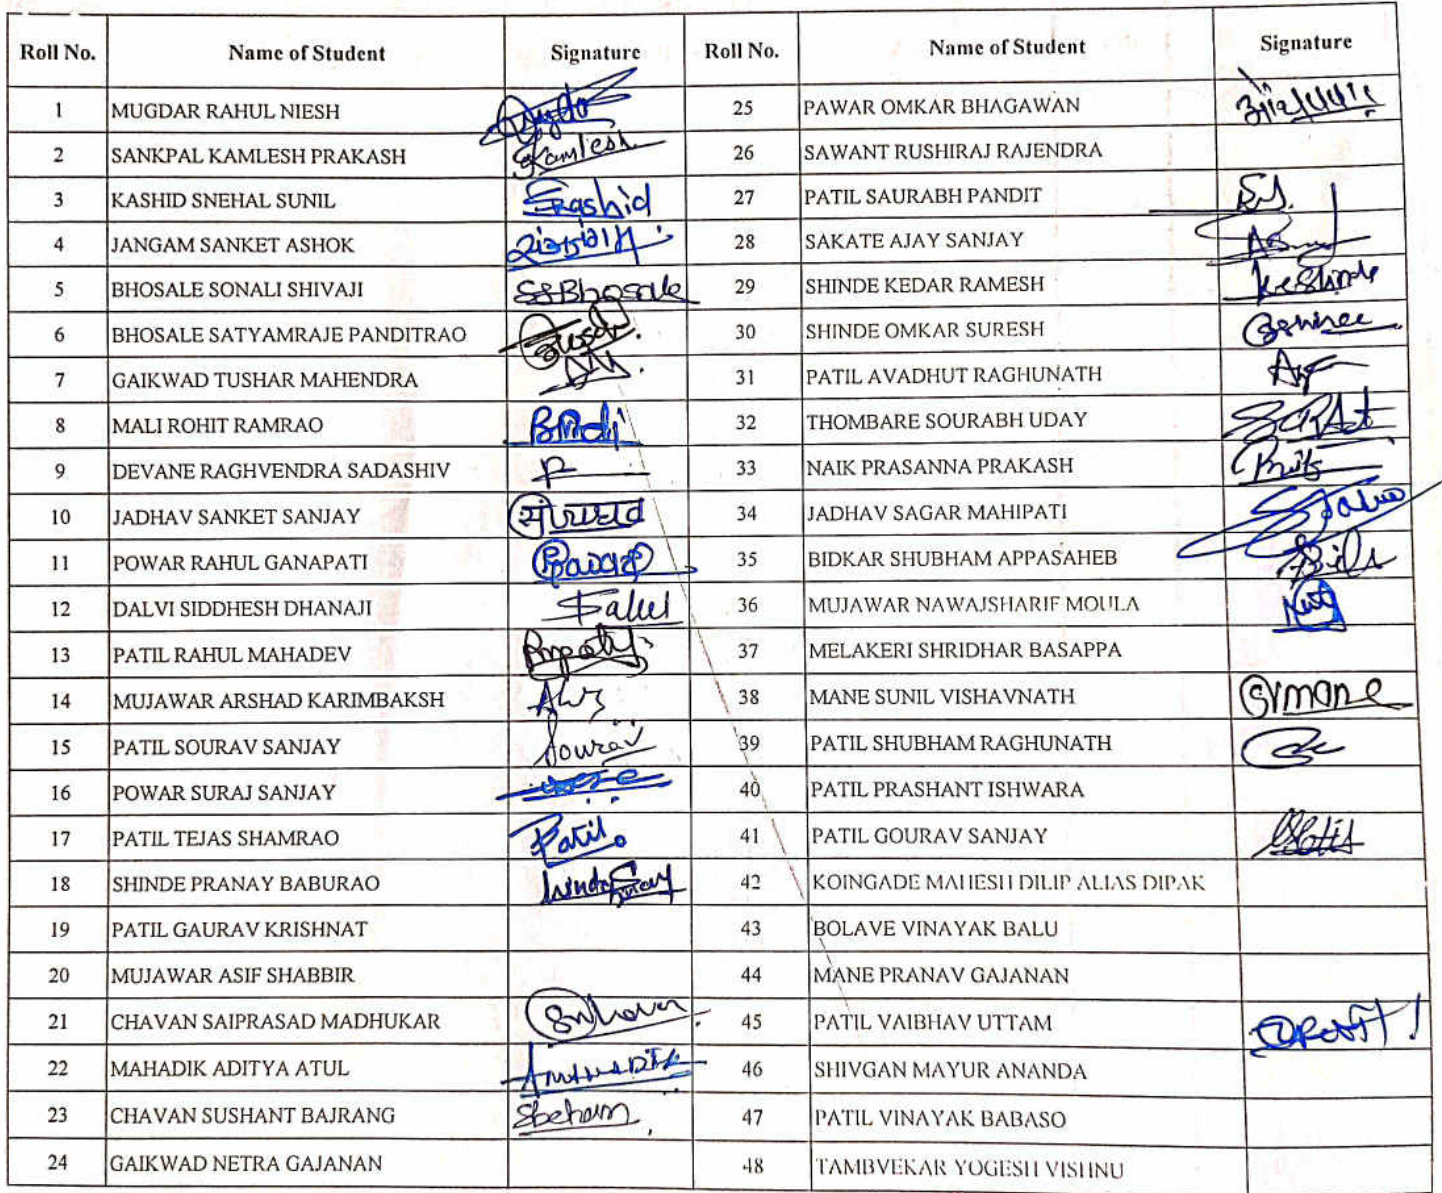 Roll No. Name of Student Signature Roll No. Name of Student Signature
1 MUGDAR RAHUL NIESH 25 PAWAR OMKAR BHAGAWAN
2 SANKPAL KAMLESH PRAKASH Kamlesh 26 SAWANT RUSHIRAJ RAJENDRA
3 KASHID SNEHAL SUNIL Skashid 27 PATIL SAURABH PANDIT
4 JANGAM SANKET ASHOK 28 SAKATE AJAY SANJAY
5 BHOSALE SONALI SHIVAJI SSBhosale 29 SHINDE KEDAR RAMESH
6 BHOSALE SATYAMRAJE PANDITRAO 30 SHINDE OMKAR SURESH
7 GAIKWAD TUSHAR MAHENDRA 31 PATIL AVADHUT RAGHUNATH
8 MALI ROHIT RAMRAO 32 THOMBARE SOURABH UDAY
9 DEVANE RAGHVENDRA SADASHIV 33 NAIK PRASANNA PRAKASH
10 JADHAV SANKET SANJAY 34 JADHAV SAGAR MAHIPATI
11 POWAR RAHUL GANAPATI 35 BIDKAR SHUBHAM APPASAHEB
12 DALVI SIDDHESH DHANAJI 36 MUJAWAR NAWAJSHARIF MOULA
13 PATIL RAHUL MAHADEV 37 MELAKERI SHRIDHAR BASAPPA
14 MUJAWAR ARSHAD KARIMBAKSH 38 MANE SUNIL VISHAVNATH svmane
15 PATIL SOURAV SANJAY Sourav 39 PATIL SHUBHAM RAGHUNATH
16 POWAR SURAJ SANJAY 40 PATIL PRASHANT ISHWARA
17 PATIL TEJAS SHAMRAO Patil 41 PATIL GOURAV SANJAY
18 SHINDE PRANAY BABURAO 42 KOINGADE MAHESH DILIP ALIAS DIPAK
19 PATIL GAURAV KRISHNAT 43 BOLAVE VINAYAK BALU
20 MUJAWAR ASIF SHABBIR 44 MANE PRANAV GAJANAN
21 CHAVAN SAIPRASAD MADHUKAR 45 PATIL VAIBHAV UTTAM
22 MAHADIK ADITYA ATUL 46 SHIVGAN MAYUR ANANDA
23 CHAVAN SUSHANT BAJRANG 47 PATIL VINAYAK BABASO
24 GAIKWAD NETRA GAJANAN 48 TAMBVEKAR YOGESH VISHNU